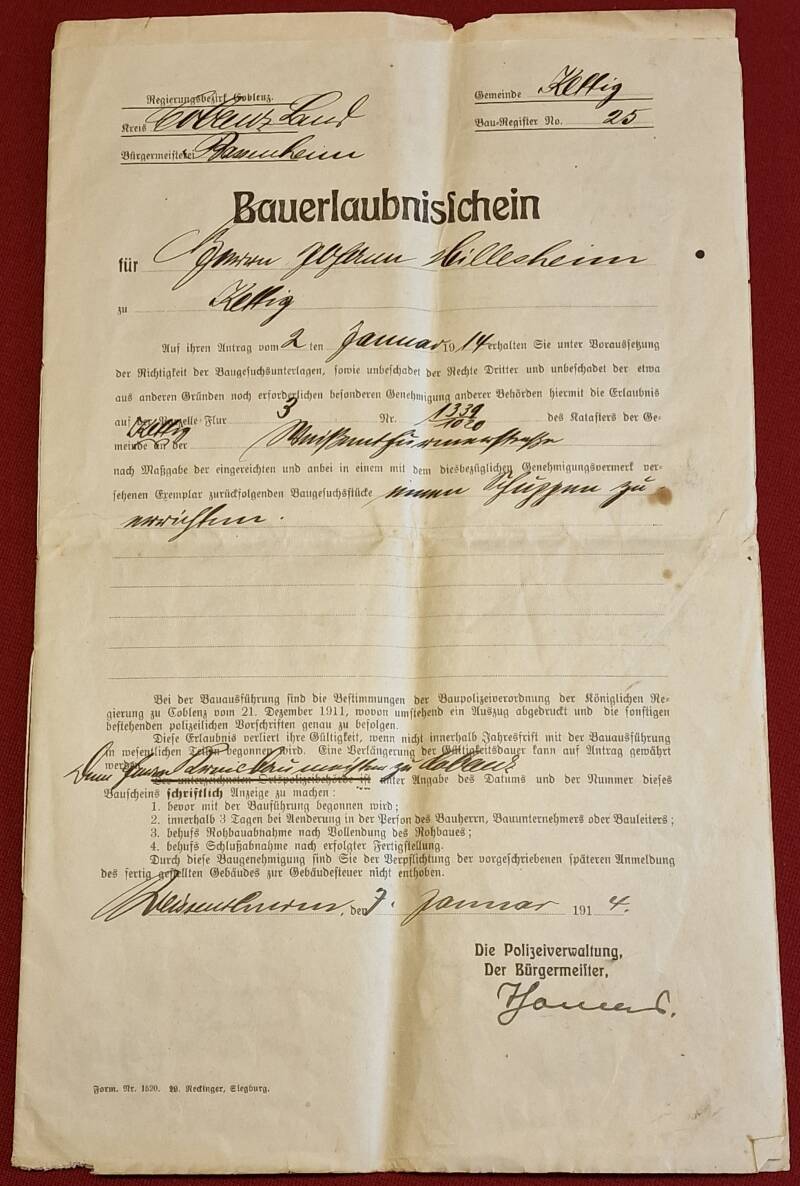 Regierungsbezirk Coblenz.
Kreis Coblenz Land
Bürgermeisterei Bassenheim
Gemeinde Kettig
Bau-Register No. 25
Bauerlaubnisschein
für Herrn Johann Hillesheim
zu Kettig
Auf ihren Antrag vom 2 ten Januar 1914 erhalten Sie unter Voraussetzung
der Richtigkeit der Baugesuchsunterlagen, sowie unbeschadet der Rechte Dritter und unbeschadet der etwa
aus anderen Gründen noch erforderlichen besonderen Genehmigung anderer Behörden hiermit die Erlaubnis
auf der Parzelle Flur 3 Nr. 1339/1020 des Katasters der Ge-
meinde Kettig an der Weissenthurmerstraße
nach Maßgabe der eingereichten und anbei in einem mit dem diesbezüglichen Genehmigungsvermerk ver-
sehenen Exemplar zurückfolgenden Baugesuchstücke einen Schuppen zu
errichten.
Bei der Bauausführung sind die Bestimmungen der Baupolizeiverordnung der Königlichen Re-
gierung zu Coblenz vom 21. Dezember 1911, wovon umstehend ein Auszug abgedruckt und die sonstigen
bestehenden polizeilichen Vorschriften genau zu befolgen.
Diese Erlaubnis verliert ihre Gültigkeit, wenn nicht innerhalb Jahresfrist mit der Bauausführung
in wesentlichen Teilen begonnen wird. Eine Verlängerung der Gültigkeitsdauer kann auf Antrag gewährt
werden.
Dem Herrn Kreisbaumeister zu Coblenz
Der unterzeichneten Ortspolizeibehörde ist unter Angabe des Datums und der Nummer dieses
Bauscheins schriftlich Anzeige zu machen:
1. bevor mit der Bauführung begonnen wird;
2. innerhalb 3 Tagen bei Aenderung in der Person des Bauherrn, Bauunternehmers oder Bauleiters;
3. behufs Rohbauabnahme nach Vollendung des Rohbaues;
4. behufs Schlußabnahme nach erfolgter Fertigstellung.
Durch diese Baugenehmigung sind Sie der Verpflichtung der vorgeschriebenen späteren Anmeldung
des fertig gestellten Gebäudes zur Gebäudesteuer nicht enthoben.
Weissenthurm, den 7. Januar 1914.
Die Polizeiverwaltung,
Der Bürgermeister,
Form. Nr. 1520. W. Reckinger, Siegburg.